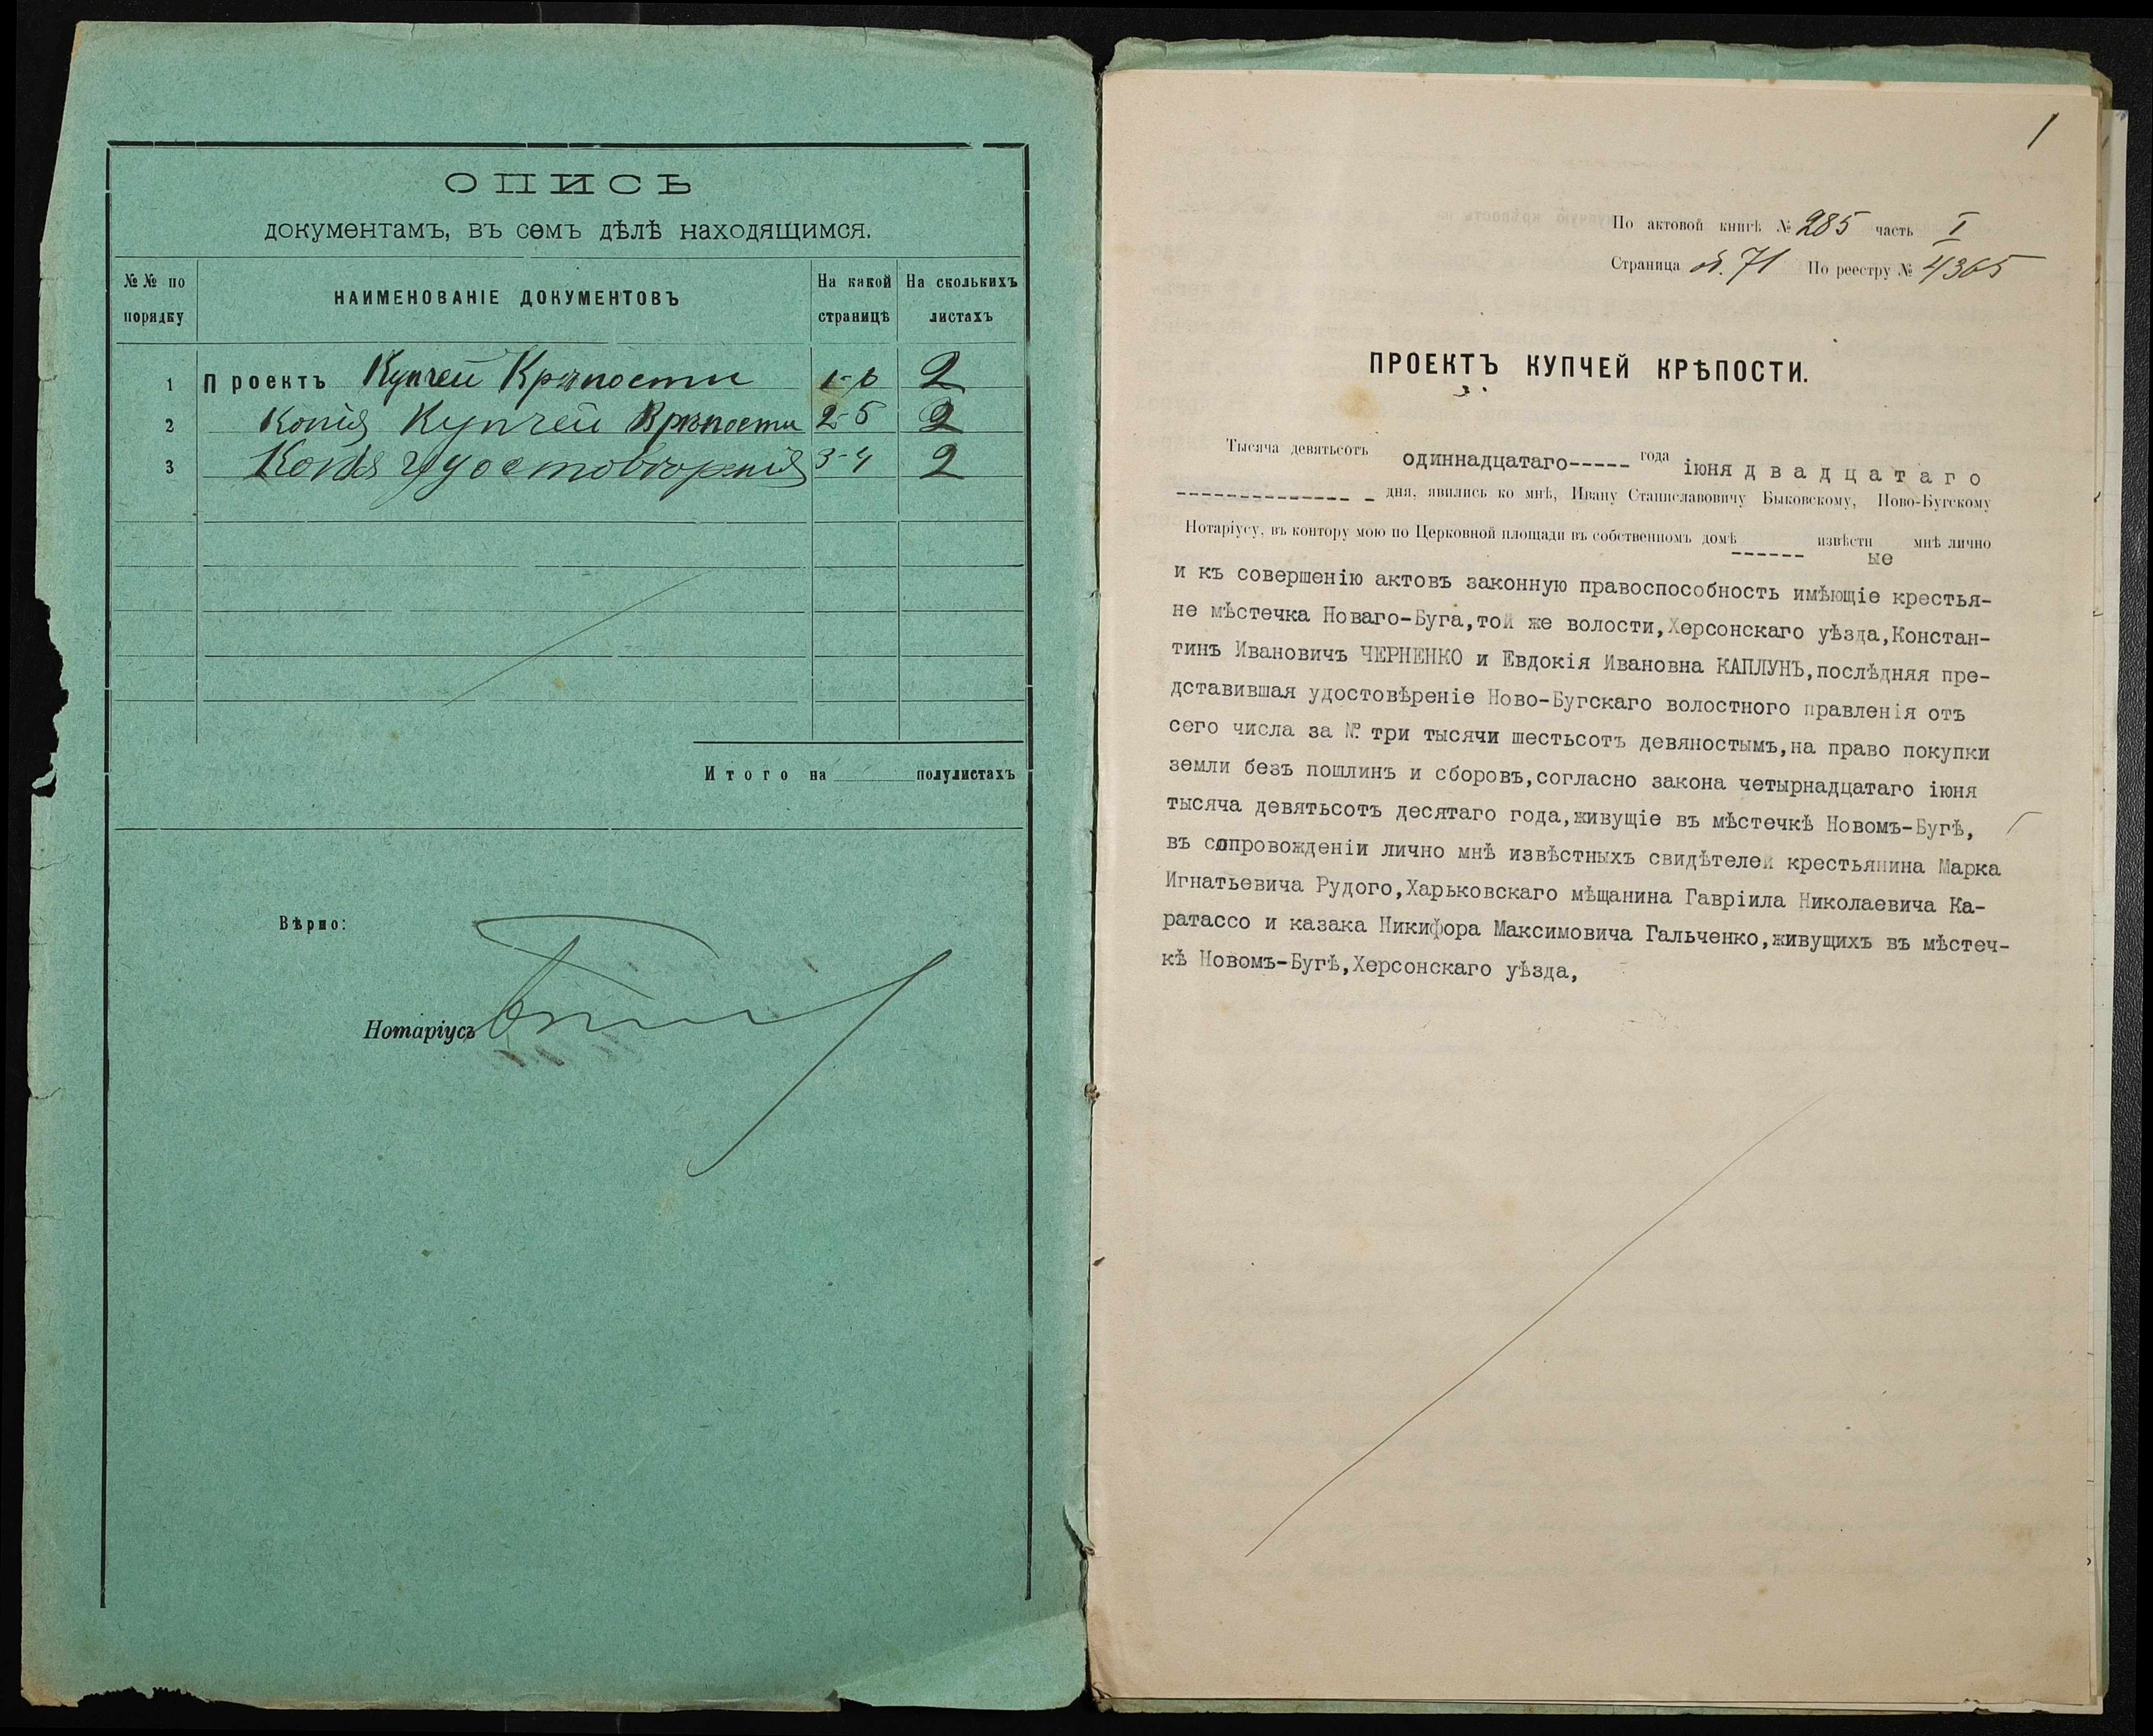 ОПИСЬ
документамъ, въ семъ дѣлѣ находящимся.
№№ по порядку
НАИМЕНОВАНІЕ ДОКУМЕНТОВЪ
На какой страницѣ
На сколькихъ листахъ
1 Проектъ Купчей Крѣпости 1-6 2
2 Копія Купчей Крѣпости 2-5 2
3 Копія удостовѣренія 3-4 2
Итого на полулистахъ
Вѣрно:
Нотаріусъ
1
По актовой книгѣ № 285 часть I
Страница об. 71 По реестру № 4365
ПРОЕКТЪ КУПЧЕЙ КРѢПОСТИ.
Тысяча девятьсотъ одиннадцатаго----- года іюня двадцатаго
-------------- - дня, явились ко мнѣ, Ивану Станиславовичу Быковскому, Ново-Бугскому
Нотаріусу, въ контору мою по Церковной площади въ собственномъ домѣ ------ извѣстные мнѣ лично
и къ совершенію актовъ законную правоспособность имѣющіе крестья-
не мѣстечка Новаго-Буга,той же волости,Херсонскаго уѣзда,Констан-
тинъ Ивановичъ ЧЕРНЕНКО и Евдокія Ивановна КАПЛУНЪ,послѣдняя пре-
дставившая удостовѣреніе Ново-Бугскаго волостного правленія отъ
сего числа за № три тысячи шестьсотъ девяностымъ,на право покупки
земли безъ пошлинъ и сборовъ,согласно закона четырнадцатаго іюня
тысяча девятьсотъ десятаго года,живущіе въ мѣстечкѣ Новомъ-Бугѣ,
въ сопровожденіи лично мнѣ извѣстныхъ свидѣтелей крестьянина Марка
Игнатьевича Рудого,Харьковскаго мѣщанина Гавріила Николаевича Ка-
ратассо и казака Никифора Максимовича Гальченко,живущихъ въ мѣстеч-
кѣ Новомъ-Бугѣ,Херсонскаго уѣзда,